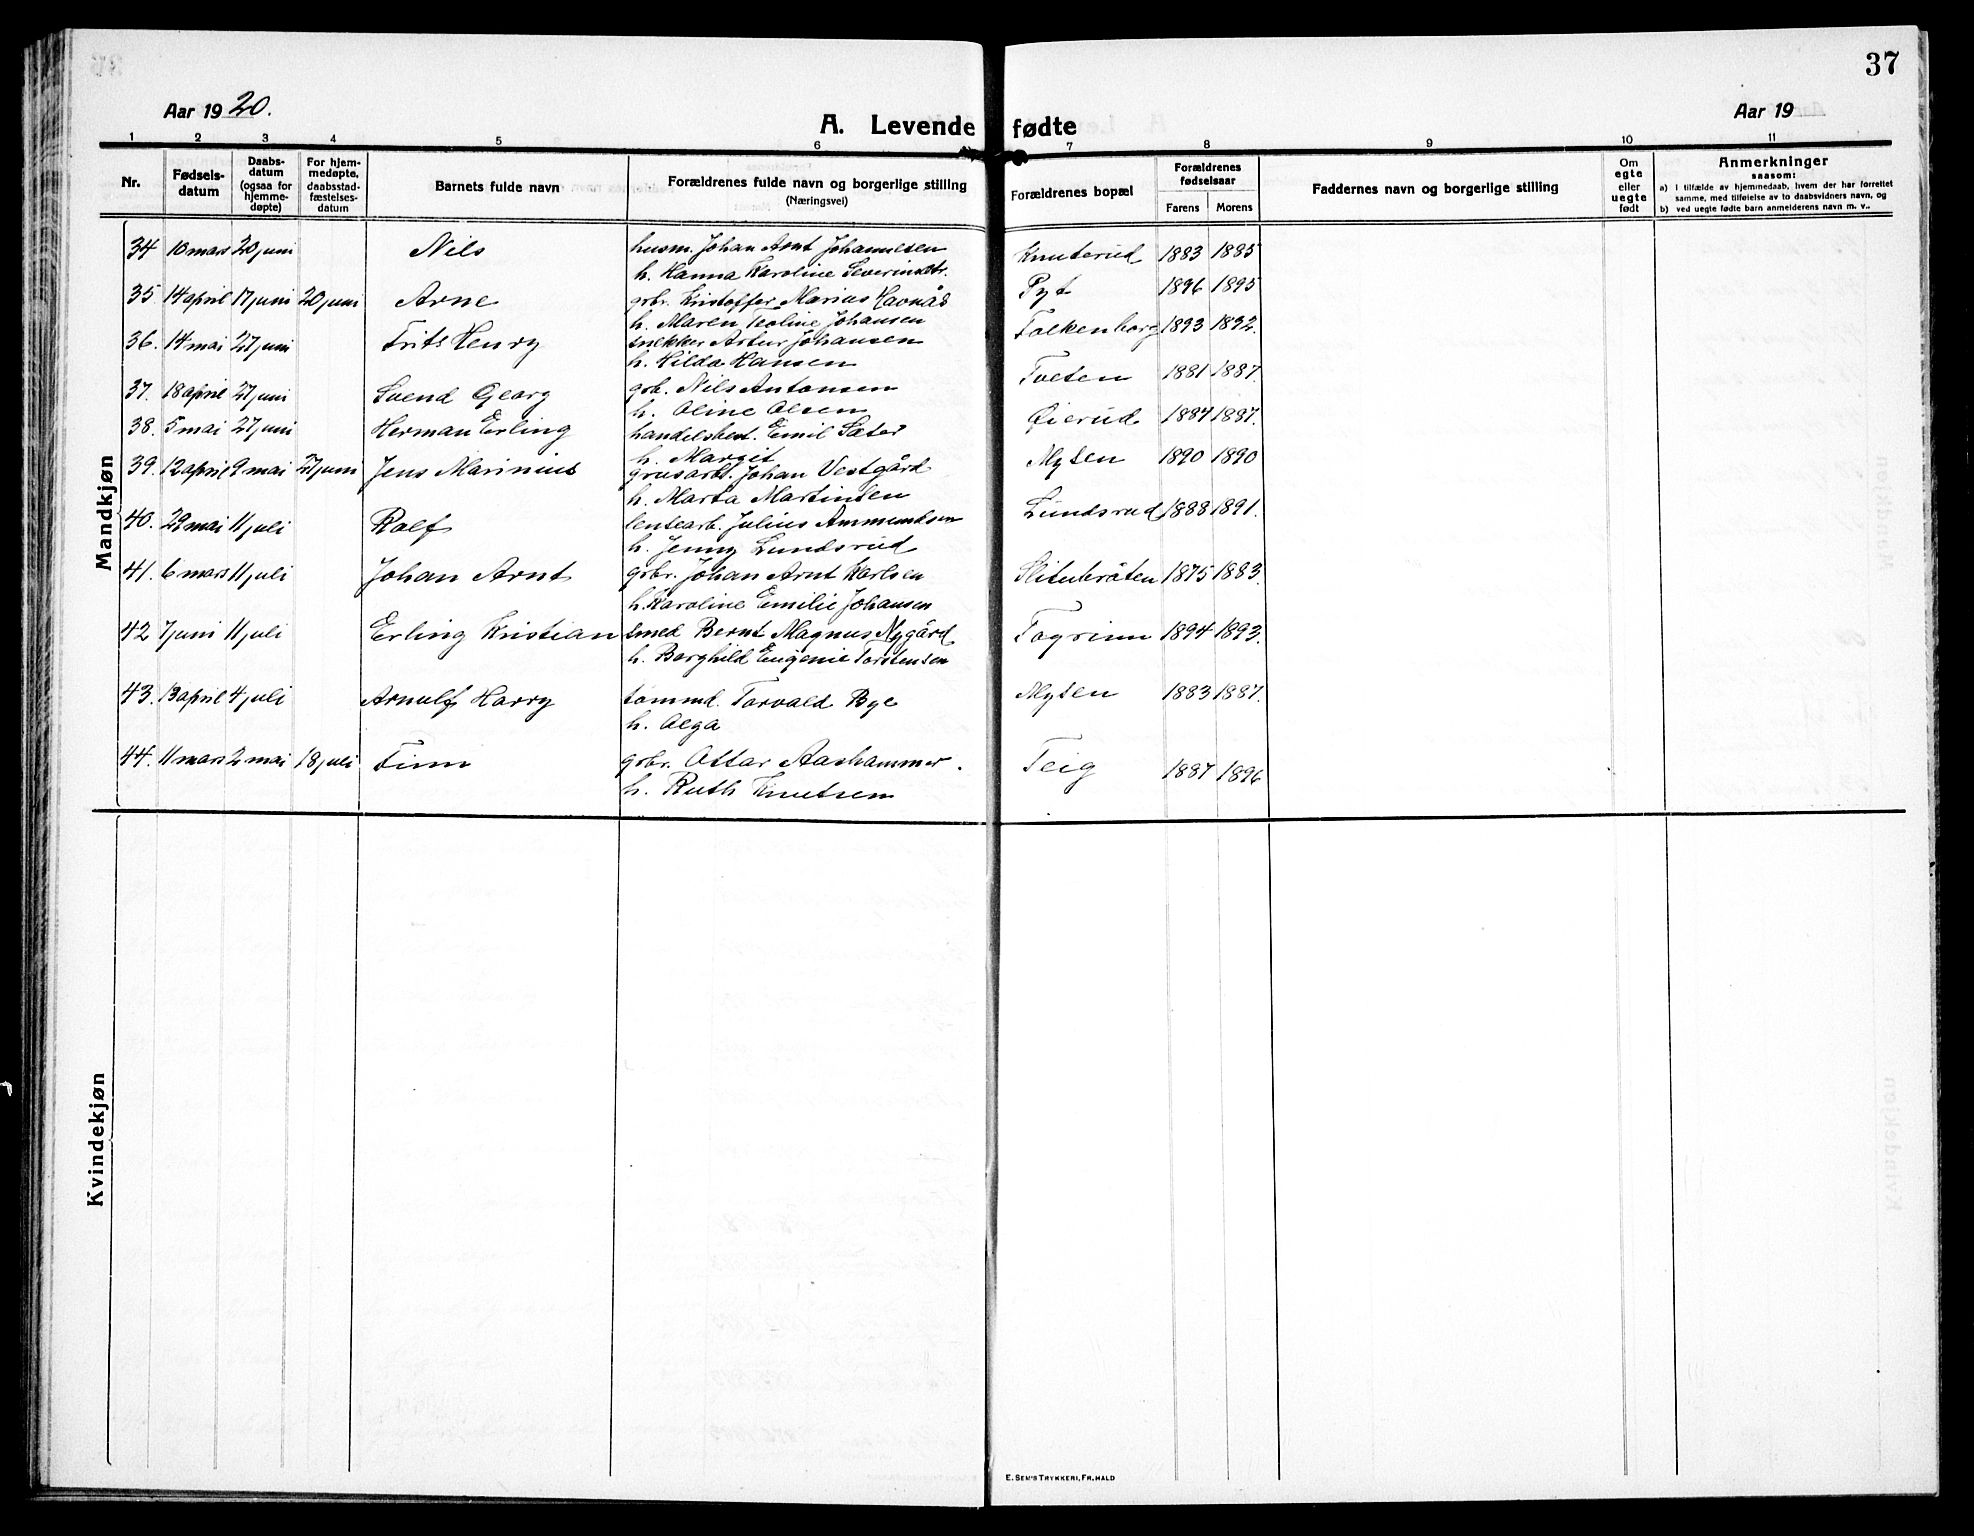 37
Aar 1920.
A. Levende fødte
Aar 19
1 2 3 4 5 6 7 8 9 10 11
Nr.
Fødsels-
datum
Daabs-
datum
(ogsaa for
hjemme-
døpte)
For hjem-
medøpte,
daabsstad-
fæstelses-
datum
Barnets fulde navn
Forældrenes fulde navn og borgerlige stilling
(Næringsvei)
Forældrenes bopæl
Forældrenes
fødselsaar
Farens Morens
Faddernes navn og borgerlige stilling
Om
egte
eller
uegte
født
Anmerkninger
saasom:
a) I tilfælde av hjemmedaab, hvem der har forrettet
samme, med tilføielse av to daabsvidners navn, og
b) ved uegte fødte barn anmelderens navn m. v..
Mandkjøn
34 10 mars 20 juni Nils husm. Johan Arnt Johannesen Knuterud 1883 1885
h. Hanna Karoline Severinsdtr.
35. 14 april 17 juni 20 juni Arne grbr. Kristoffer Marius Havnås Pyt 1896 1895
h. Maren Teoline Johansen
36. 14 mai 27 juni Frits Henry snekker Artur Johansen Falkenborg 1893 1892.
h. Hilda Hansen
37. 18 april 27 juni Svend Georg grb. Nils Antonsen Tveten 1881 1887.
h. Oline Olsen
38. 5 mai 27 juni Herman Erling handelsbest. Emil Sæter Øierud 1887 1887.
h. Margit
39. 12 april 9 mai 27 juni Jens Marinius grusarb. Johan Vestgård Mysen 1890 1890
h. Marta Martinsen
40. 29 mai 11 juli Ralf Julius Ammundsen Lundsrud 1888 1891.
h. Jenny Lundsrud
41. 6 mars 11 juli Johan Arnt grbr. Johan Arnt Karlsen Slitubråten 1875 1883.
h. Karoline Emilie Johansen
42 7 juni 11 juli Erling Kristian smed Bernt Magnus Nygård 1894 1893.
h. Borghild Eugenie Torstensen
43. 13 april 4 juli Arnulf Harry tømmd. Torvald Bye Mysen 1883 1887.
h. Olga
44. 11 mars 2 mai 18 juli Finn grbr. Ottar Aashammer. Teig 1887 1896
h. Ruth Knutsen
Kvindekjøn
E. SEM'S TRYKKERI, FR.HALD